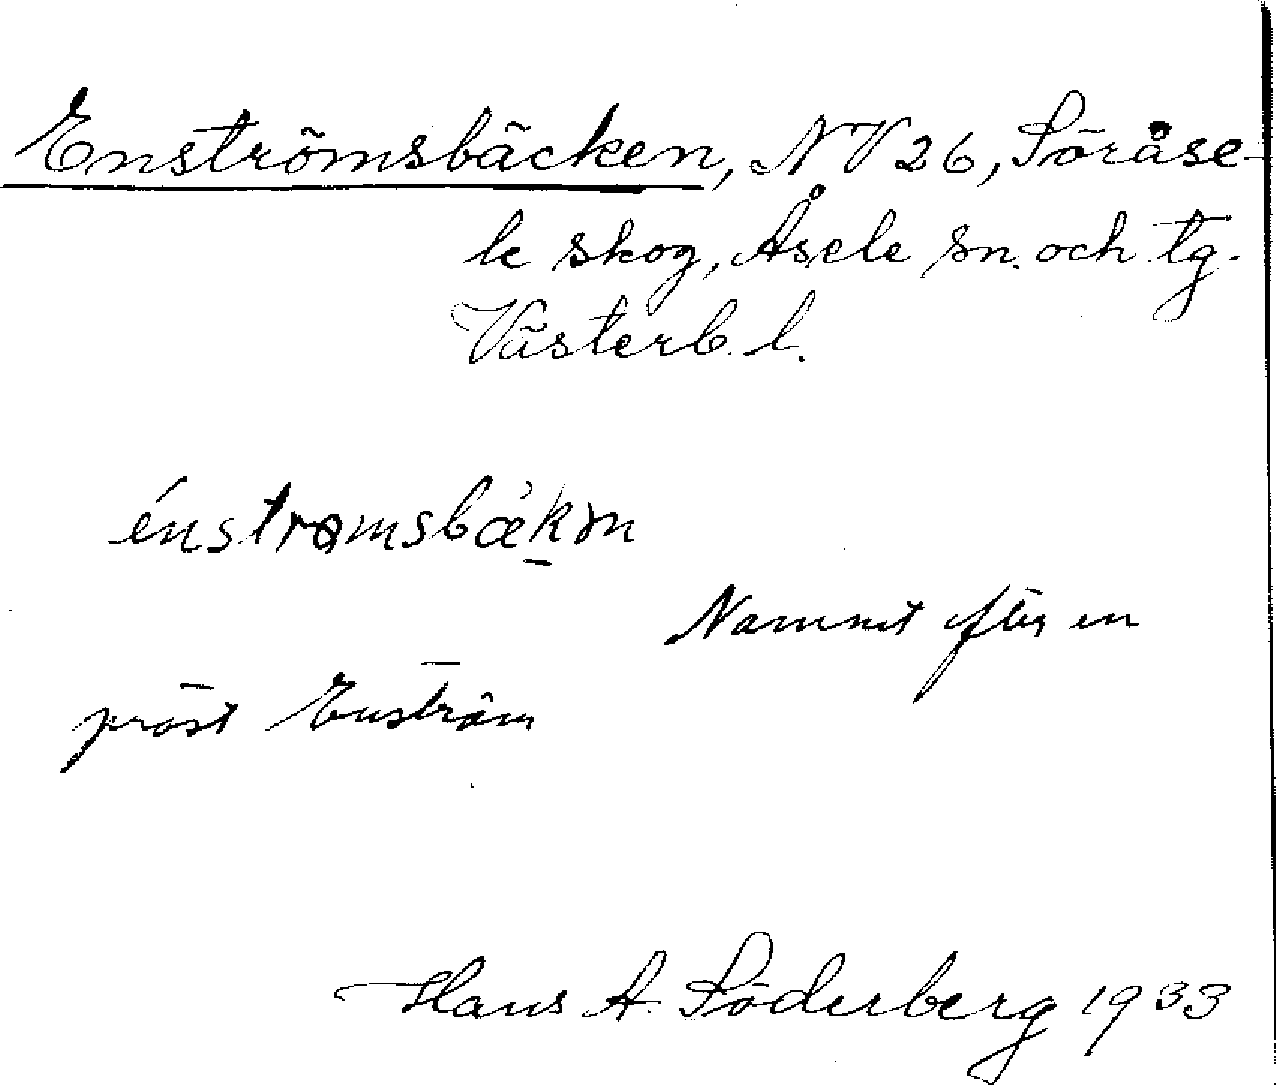 Enströmsbäcken, NV 26, Söråse-
le skog, Åsele sn. och tg.
Västerb. l.
énstrømsbæ̀kən
Namnet efter en
präst Enström
Hans A. Söderberg 1933